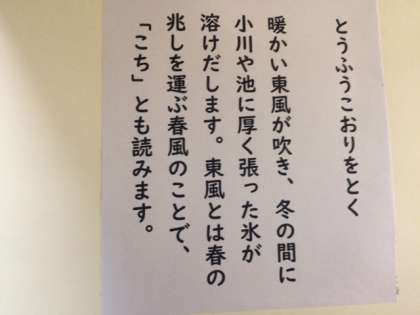 とうふうこおりをとく
暖かい東風が吹き、冬の間に
小川や池に厚く張った氷が
溶けだします。東風とは春の
兆しを運ぶ春風のことで、
「こち」とも読みます。